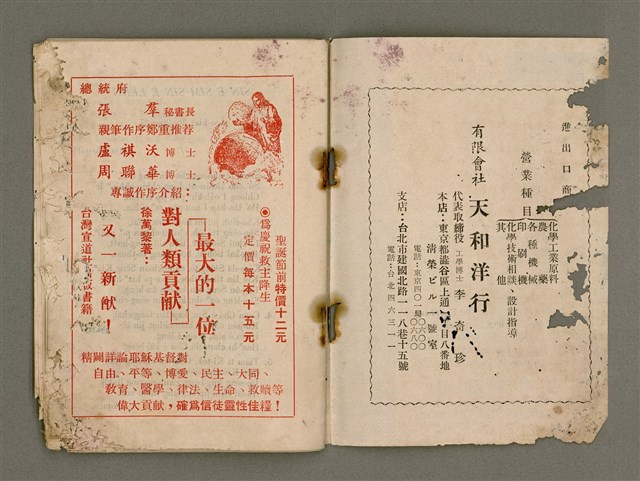 進出口商
營業種目
化學工業原料
農藥
各種機械
印刷機
化學技術相談、設計指導
其他
有限會社 天和洋行
代表取締役 工學博士 李奇珍
本店:東京都澁谷區上通
目八番地
清榮ビル 一號室
電話:東京四〇一局
支店:台北市建國北路一一八巷十五號
電話:台北四六三二一
總統府
張羣秘書長
親筆作序鄭重推荐
盧祺沃博士
周聯華博士
專誠作序介紹:
聖誕節前特價十二元
定價每本十五元
◉爲慶祝救主降生
最大的一位
對人類貢獻
徐萬黎著:
又一新猷!
台灣宣道社
書籍
精闢詳論耶穌基督對
自由、平等、博愛、民主、大同、
教育、醫學、律法、生命、救贖等
偉大貢獻,確爲信徒靈性佳糧!